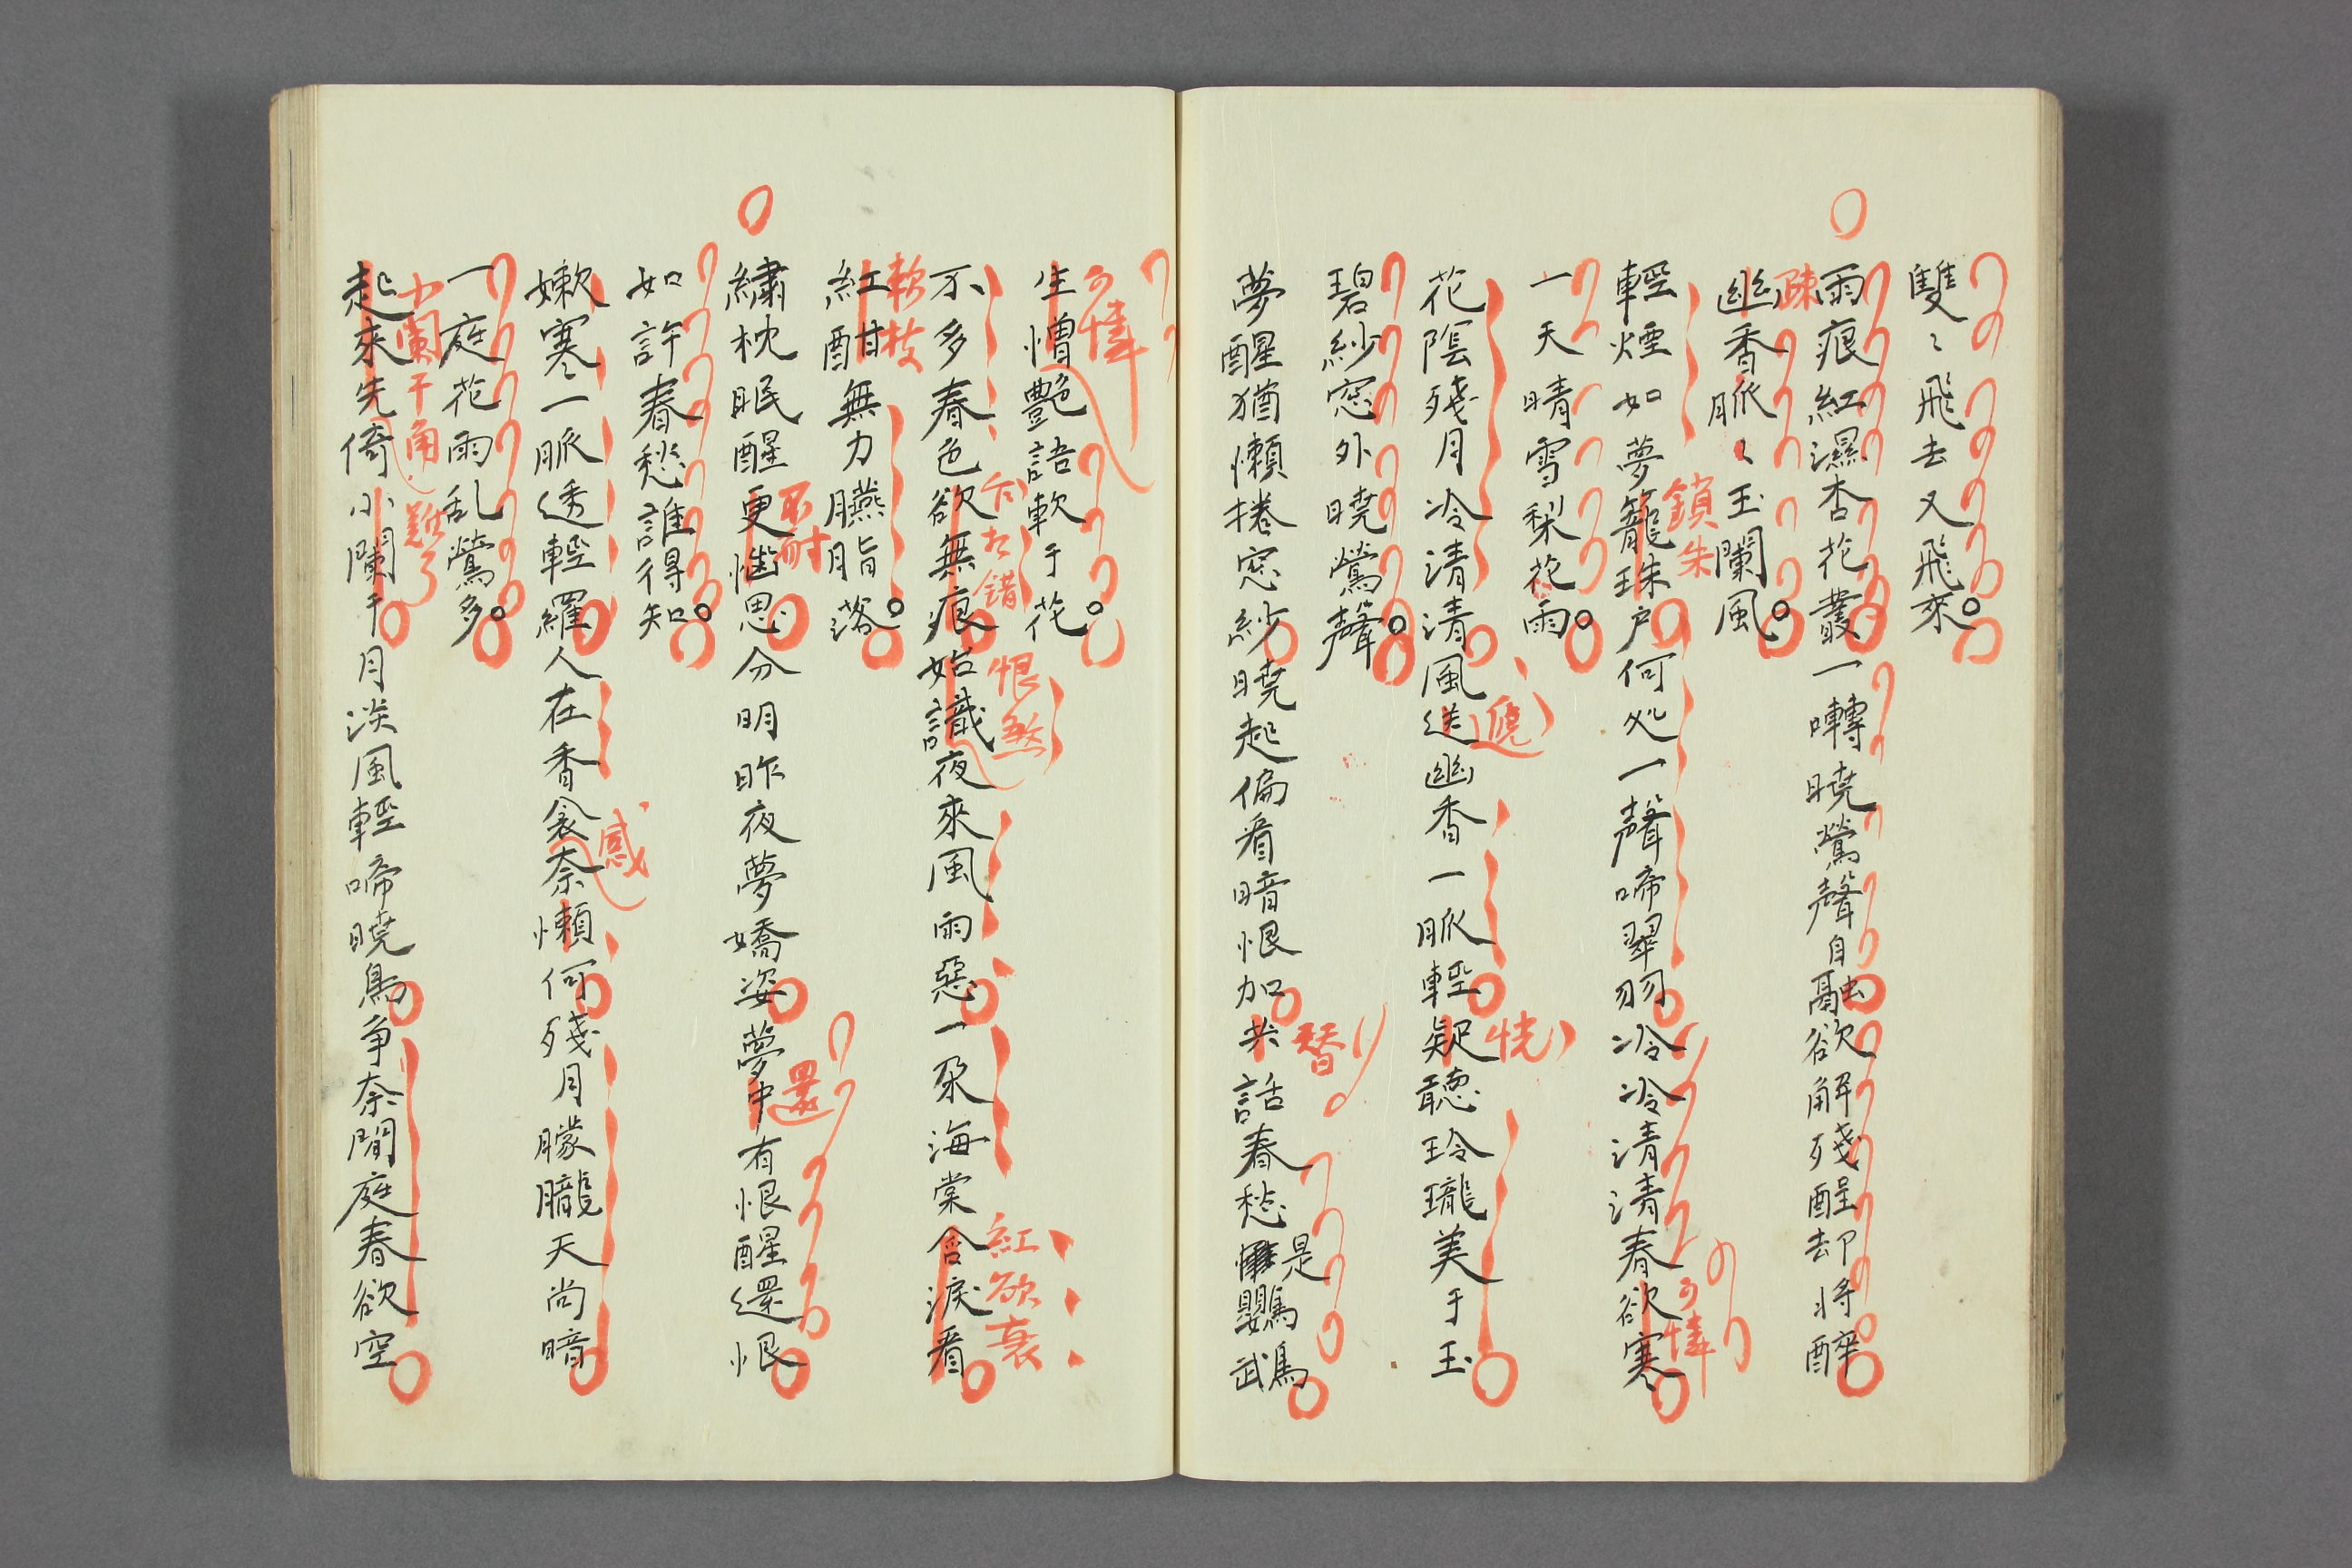 雙〻飛去又飛來。
雨痕紅濕杏花叢一囀曉鶯聲自融欲解殘酲却將醉
疎
幽香脈〻玉闌風。
輕煙如夢籠珠戶何処一聲啼翠羽冷冷清清春欲寒
鎖朱
可憐
一天晴雪梨花雨。
花陰殘月冷清清風送幽香一脈輕疑聽玲瓏美于玉
遶
恍
碧紗窓外曉鶯聲。
夢醒猶懶捲窓紗曉起偏看暗恨加共話春愁是鸚鵡
替
可憐
生憎艷語軟于花。
不多春色欲無痕始識夜來風雨惡一朶海棠含淚看
大錯
恨煞
紅欲衰
軟枝
紅酣無力臙脂落。
繡枕眠醒更惱思分明昨夜夢嬌姿夢中有恨醒還恨
不耐
還
如許春愁誰得知。
嫩寒一脈透輕羅人在香衾奈懶何殘月朦朧天尚暗
感
一庭花雨乱鶯多。
小闌干角
難了
起來先倚小闌干月淡風輕啼曉鳥爭奈閒庭春欲空